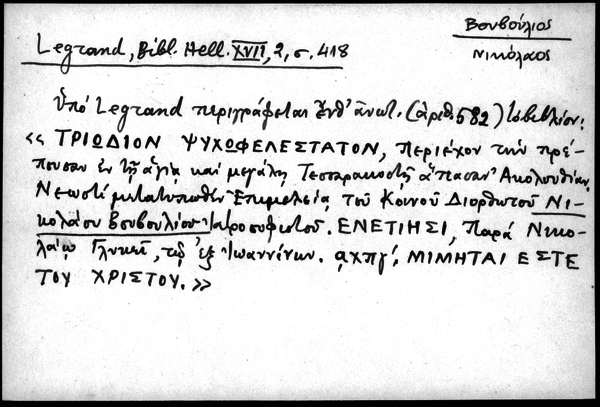 Βουβούλιος
Νικόλαος
Legrand, Bibl. Hell. XVII, 2, σ. 418
Ὑπό Legrand περιγράφεται ἔνθ' ἀνωτ. (ἀριθ. 582) τό βιβλίον:
« ΤΡΙΩΔΙΟΝ ΨΥΧΩΦΕΛΕΣΤΑΤΟΝ, περιέχον τήν πρέ-
πουσαν ἐν τῇ ἁγίᾳ καί μεγάλῃ Τεσσαρακοστῇ ἅπασαν Ἀκολουθίαν
Νεωστί μετατυπωθέν Ἐπιμελείᾳ τοῦ Κοινοῦ Διορθωτοῦ Νι-
κολάου Βουβουλίου Ἰατροσοφιστοῦ. ΕΝΕΤΙΗΣΙ, Παρά Νικο-
λάῳ Γλυκεῖ, τῷ ἐξ Ἰωαννίνων. αχπγ΄. ΜΙΜΗΤΑΙ ΕΣΤΕ
ΤΟΥ ΧΡΙΣΤΟΥ. »